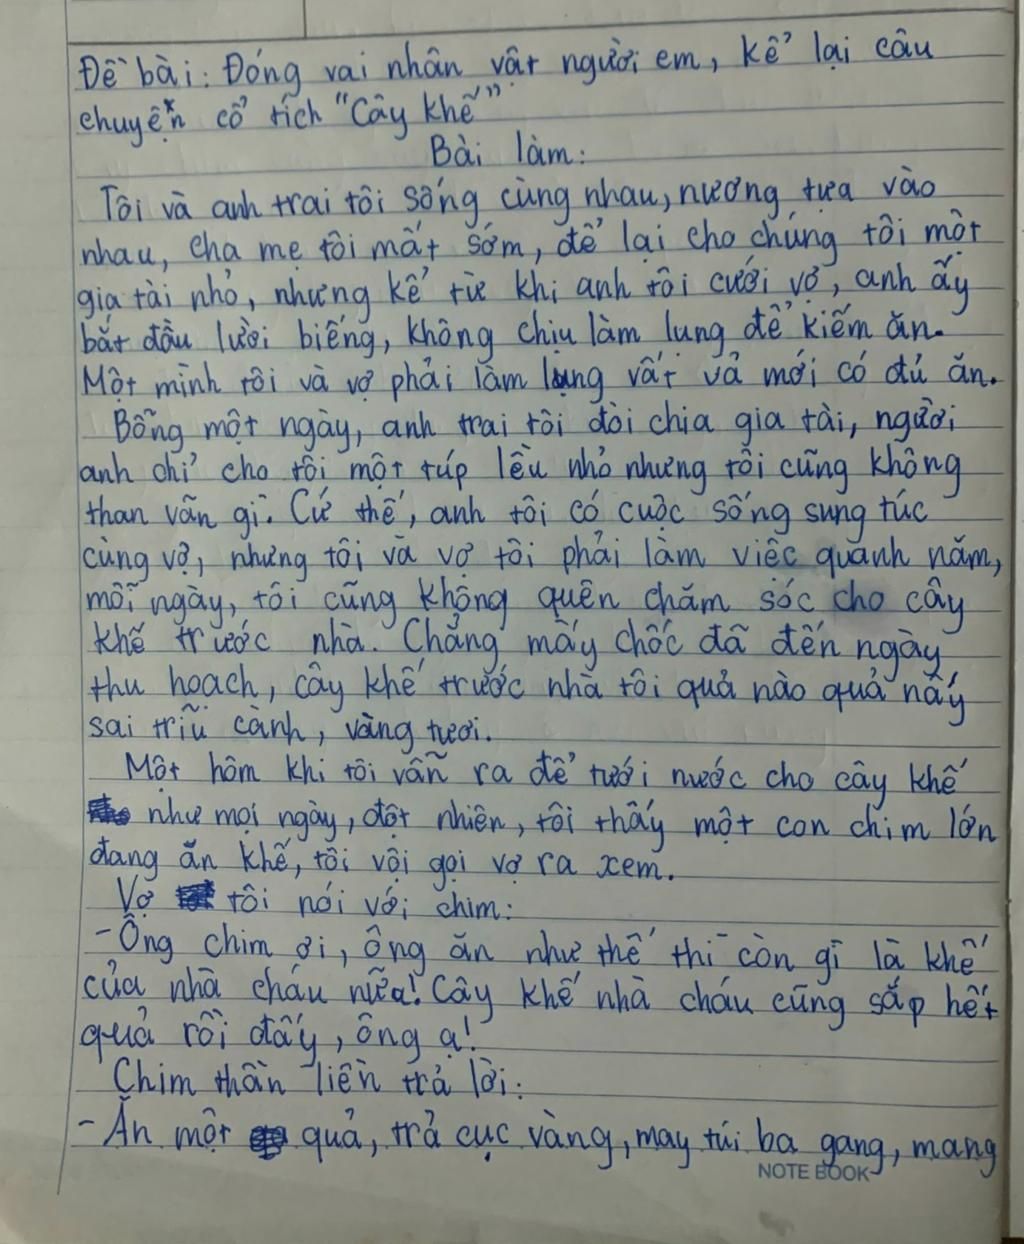 Đề bài: Đóng vai nhân vật người em, kể lại câu
chuyện cổ tích "Cây khế"
Bài làm:
Tôi và anh trai tôi sống cùng nhau, nương tựa vào
nhau, cha mẹ tôi mất sớm, để lại cho chúng tôi một
gia tài nhỏ, nhưng kể từ khi anh tôi cưới vợ, anh ấy
bắt đầu lười biếng, không chịu làm lung để kiếm ăn.
Một mình tôi và vợ phải làm lụng vất vả mới có đủ ăn.
Bỗng một ngày, anh trai tôi đòi chia gia tài, người
anh chỉ cho tôi một túp lều nhỏ nhưng tôi cũng không
than vãn gì. Cứ thế, anh tôi có cuộc sống sung túc
cùng vợ, nhưng tôi và vợ tôi phải làm việc quanh năm,
mỗi ngày, tôi cũng không quên chăm sóc cho cây
khế trước nhà. Chẳng mấy chốc đã đến ngày
thu hoạch, cây khế trước nhà tôi quả nào quả nấy
sai trĩu cành, vàng tươi.
Một hôm khi tôi vẫn ra để tưới nước cho cây khế
như mọi ngày, đột nhiên, tôi thấy một con chim lớn
đang ăn khế, tôi vội gọi vợ ra xem.
Vợ tôi nói với chim:
- Ông chim ơi, ông ăn như thế thì còn gì là khế
của nhà cháu nữa! Cây khế nhà cháu cũng sắp hết
quả rồi đấy, ông ạ!
Chim thần liền trả lời:
- Ăn một quả, trả cục vàng, may túi ba gang, mang
NOTE BOOK